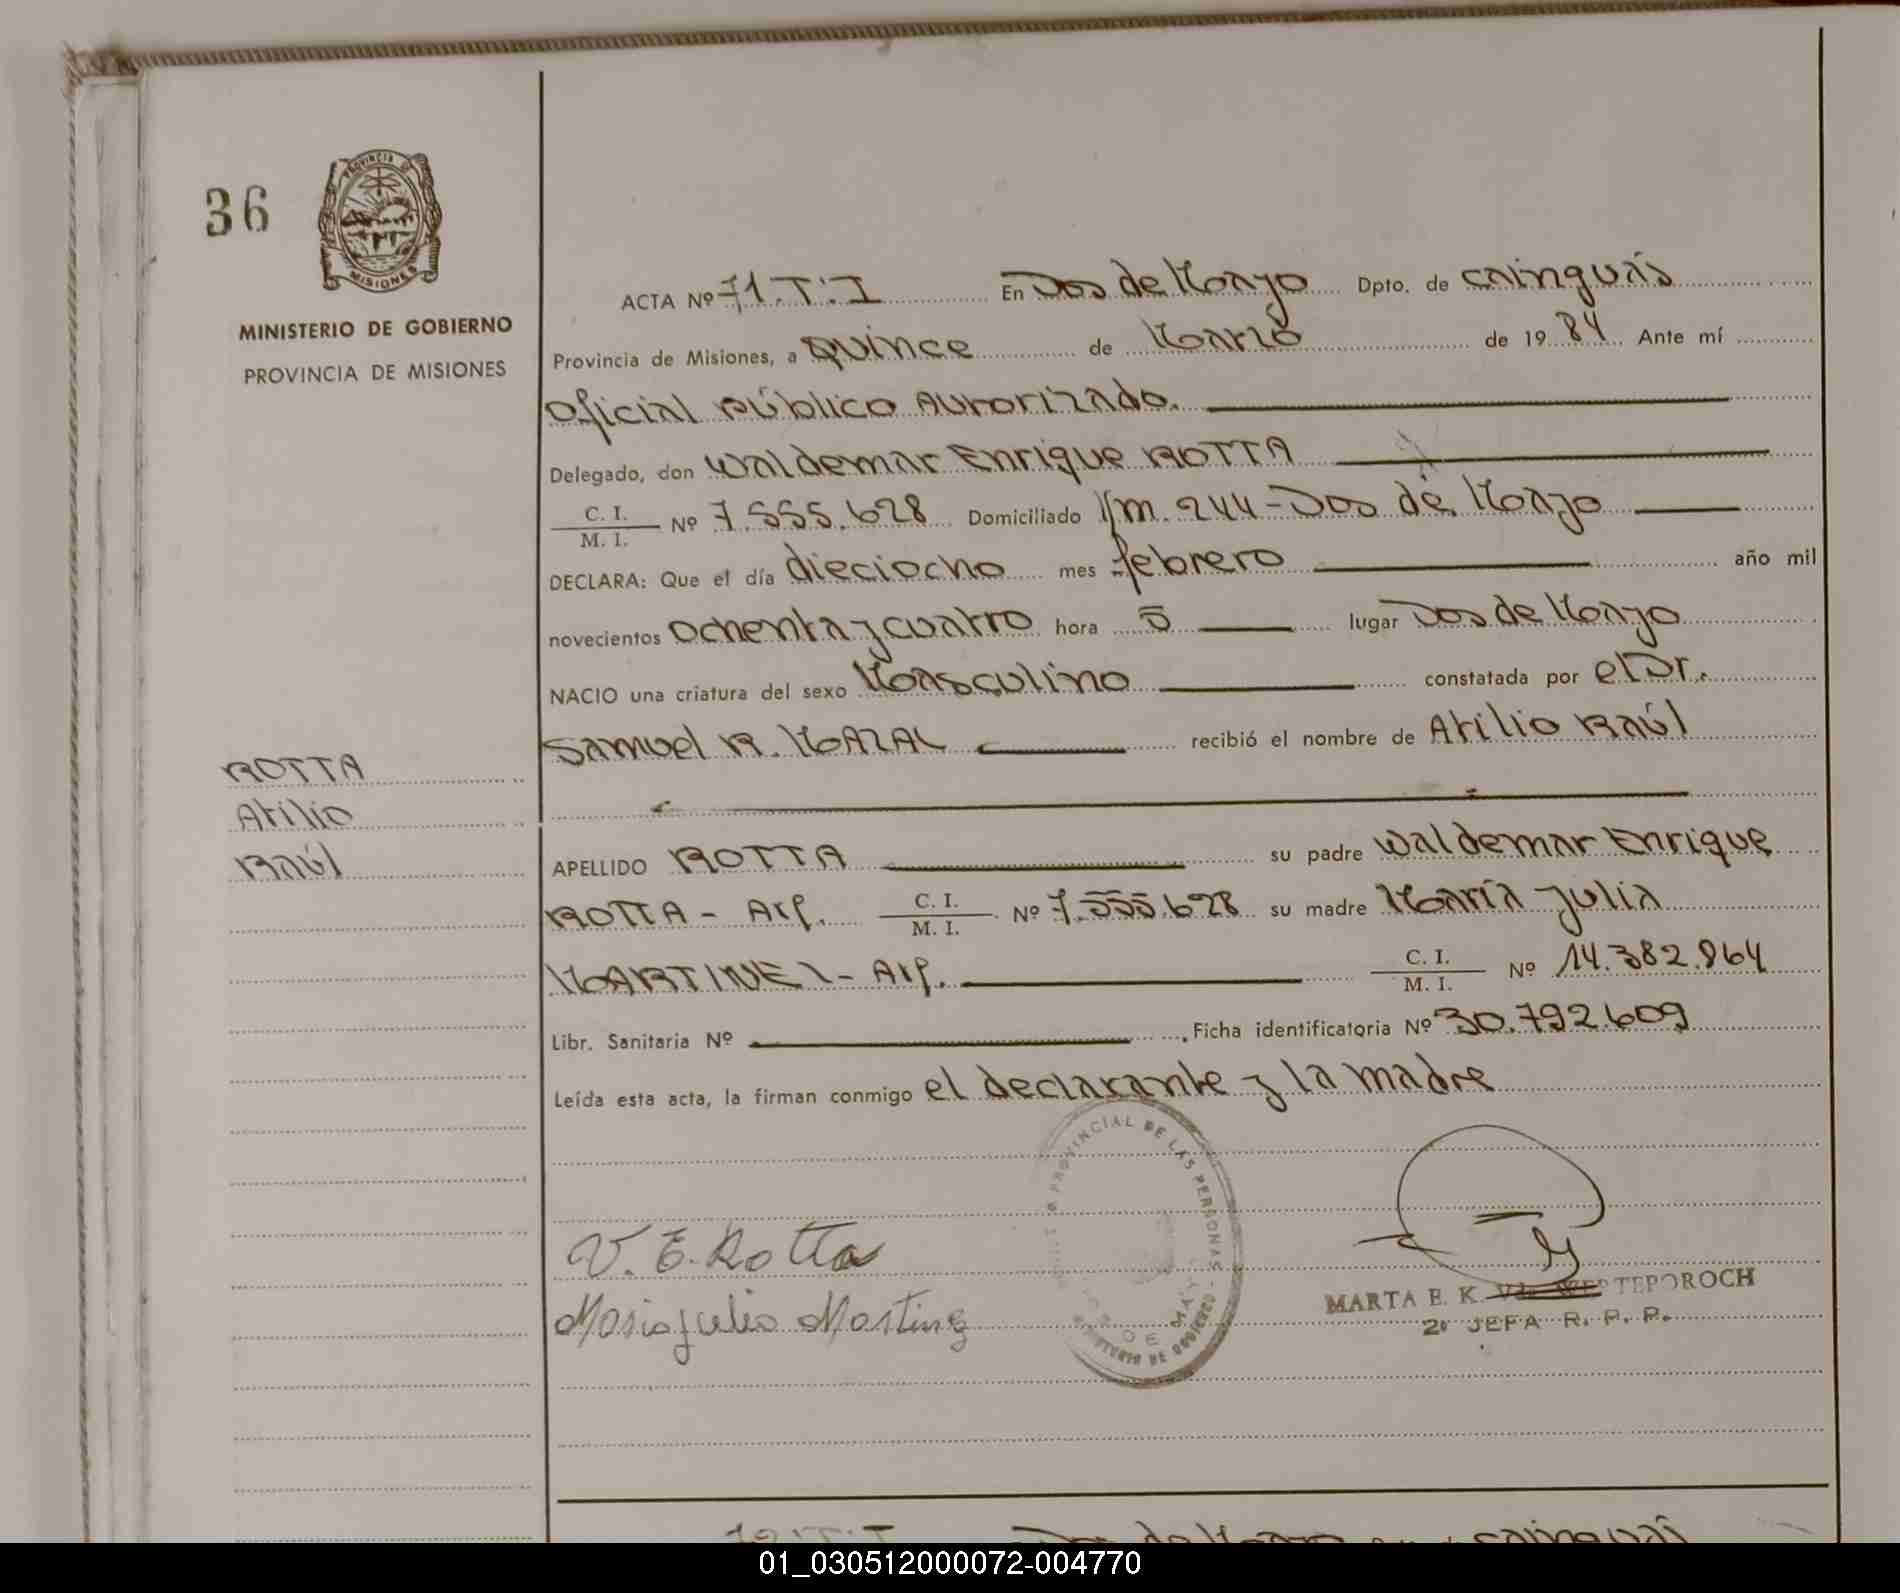 36
PROVINCIA DE
MISIONES
MINISTERIO DE GOBIERNO
PROVINCIA DE MISIONES
ROTTA
Atilio
Raúl
ACTA Nº 71.T:I En Dos de Mayo Dpto. de Cainguás
Provincia de Misiones, a Quince de Marzo de 1984 Ante mí
Oficial Público Autorizado.
Delegado, don Waldemar Enrique ROTTA
C. I.
M. I. Nº 7.555.628 Domiciliado Km. 244-Dos de Mayo
DECLARA: Que el día dieciocho mes febrero año mil
novecientos Ochenta y cuatro hora 5 lugar Dos de Mayo
NACIO una criatura del sexo Masculino constatada por el Dr.
Samuel R. MAZAL recibió el nombre de Atilio Raúl
APELLIDO ROTTA su padre Waldemar Enrique
ROTTA - Arg. C. I. M. I. Nº 7.555.628 su madre María Julia
MARTINEZ - Arg. C. I. M. I. Nº 14.382.964
Libr. Sanitaria Nº Ficha identificatoria Nº 30.792.609
Leída esta acta, la firman conmigo el declarante y la madre
PROVINCIAL DE LAS PERSONAS - DOS DE MAYO - MINISTERIO DE GOBIERNO
V. E. Rotta
Maria Julia Martinez
MARTA E. K. TEPOROCH
2º JEFA R. P. P.
Dos de Mayo Cainguás
01_030512000072-004770